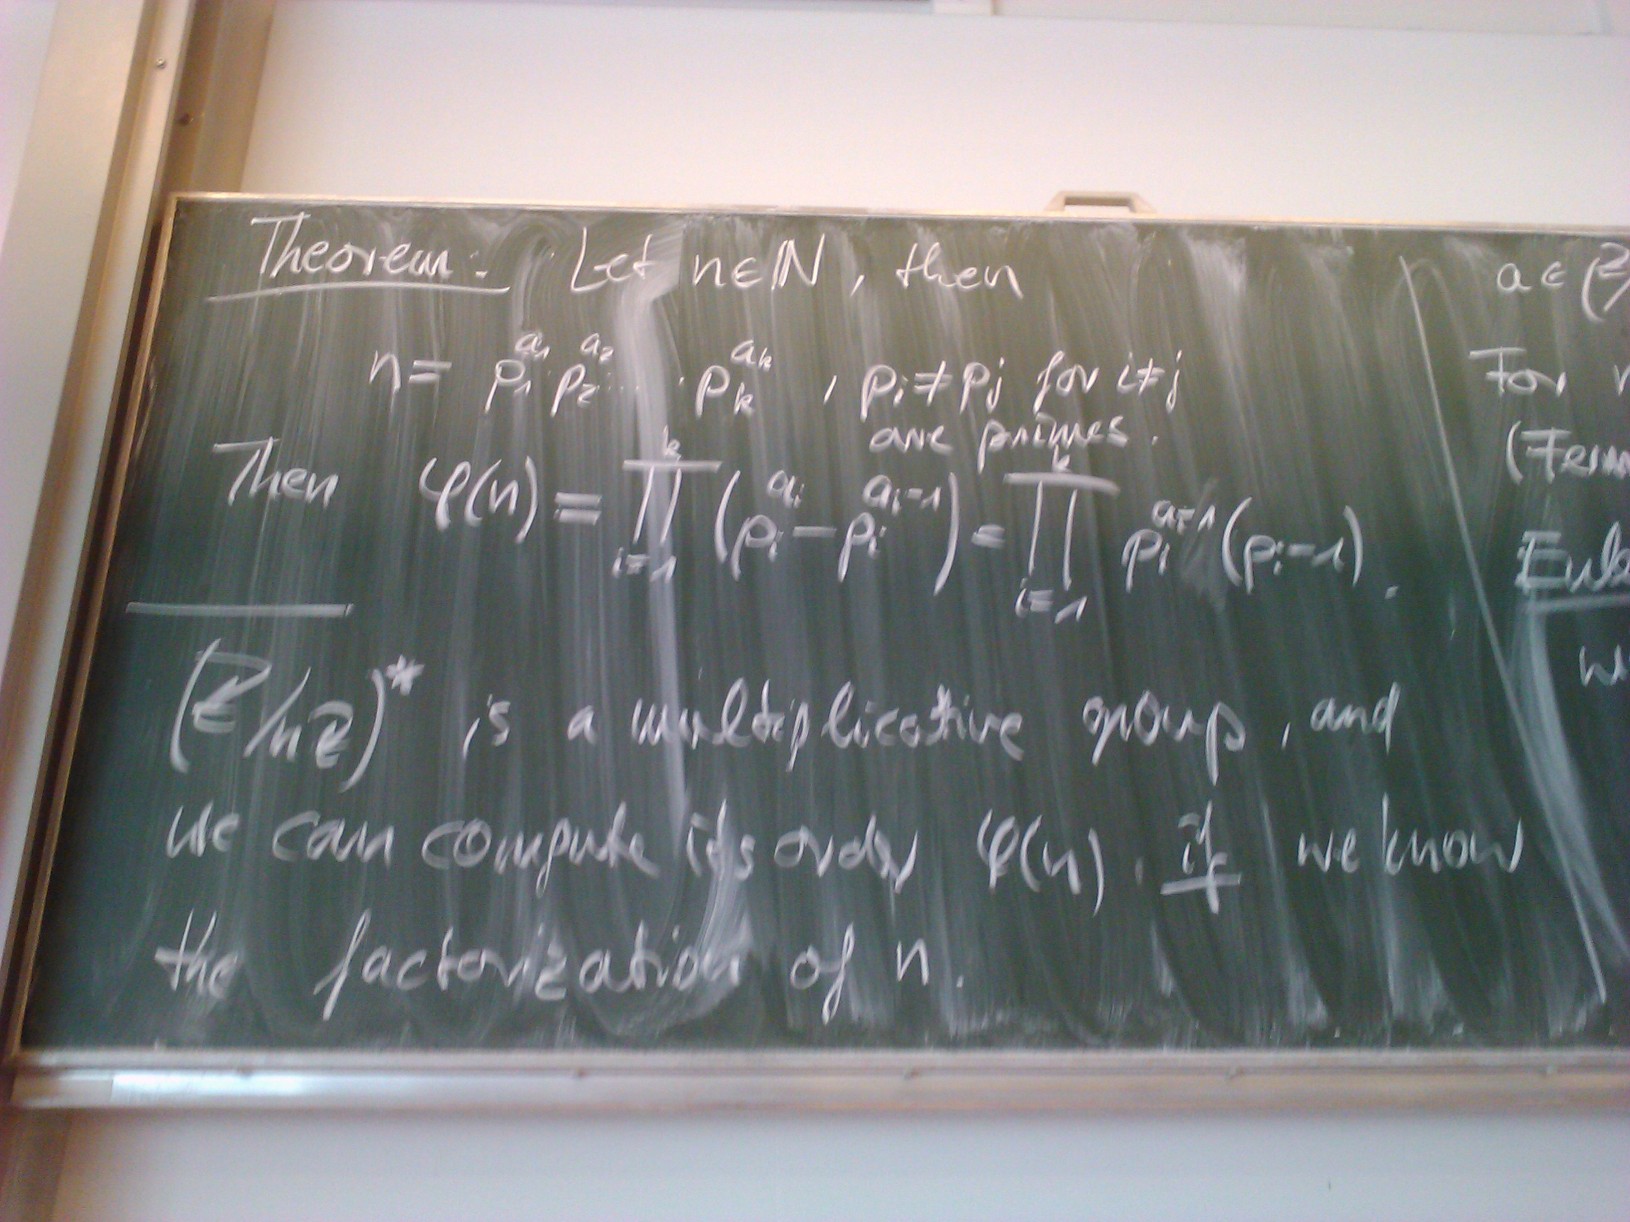 Theorem: Let n∈ℕ, then
n = p₁^a₁ p₂^a₂ ... p_k^a_k, pᵢ≠pⱼ for i≠j
are primes.
Then φ(n) = ∏_{i=1}^{k} (pᵢ^aᵢ − pᵢ^{aᵢ−1}) = ∏_{i=1}^{k} pᵢ^{aᵢ−1}(pᵢ−1).
(ℤ/nℤ)* is a multiplicative group, and
we can compute its order φ(n), if we know
the factorization of n.
a∈(ℤ/
For
(Ferm
Eule